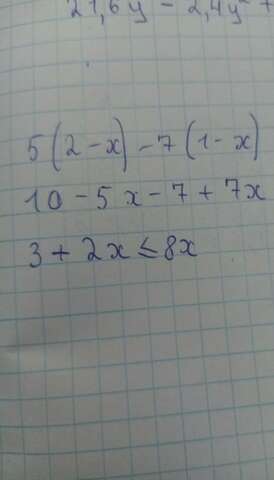 21,6y - 2,4y² +
5(2-x)-7(1-x)
10-5x-7+7x
3+2x≤8x